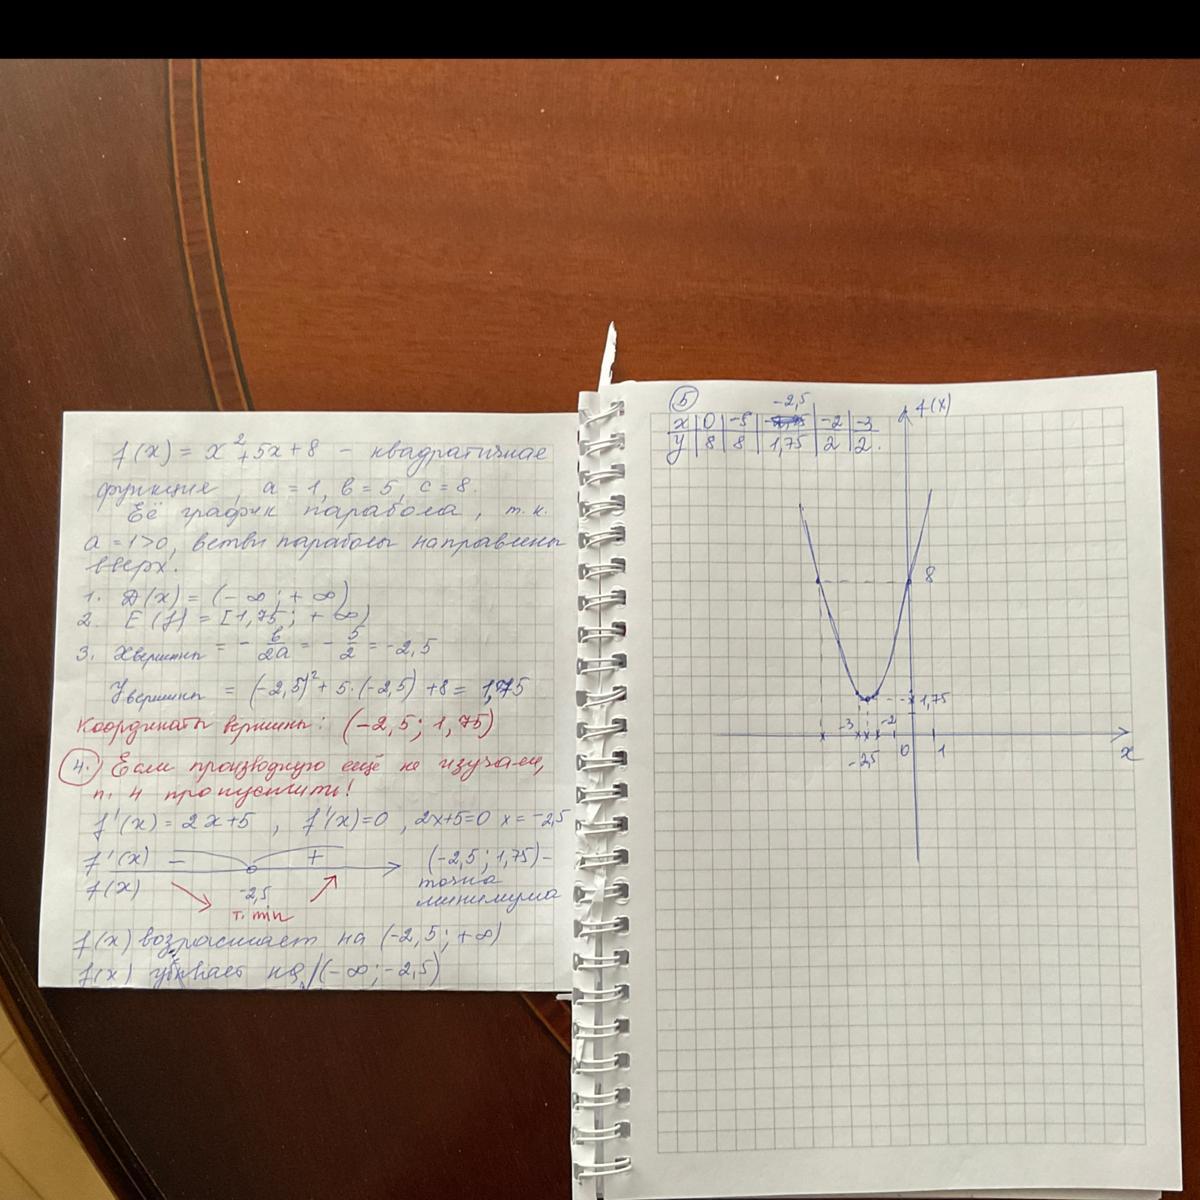 f(x) = x² + 5x + 8 – квадратичная
функция, a = 1, b = 5, c = 8.
Её график парабола, т.к.
a = 1 > 0, ветви параболы направлены
вверх.
1. D(x) = (-∞; +∞)
2. E(f) = [1,75; +∞)
3. xвершины = - b/2a = - 5/2 = -2,5
yвершины = (-2,5)² + 5·(-2,5) + 8 = 1,75
Координаты вершины: (-2,5; 1,75)
4. Если производную ещё не изучали,
п. 4 пропустить!
f'(x) = 2x+5, f'(x)=0, 2x+5=0 x = -2,5
f'(x) – +
f(x) -2,5
т. min
(-2,5; 1,75) –
точка
минимума
f(x) возрастает на (-2,5; +∞)
f(x) убывает на (-∞; -2,5)
5
-2,5
x | 0 | -5 | -2 | -3
y | 8 | 8 | 1,75 | 2 | 2.
f(x)
8
1,75
-3 -2
-2,5 0 1 x